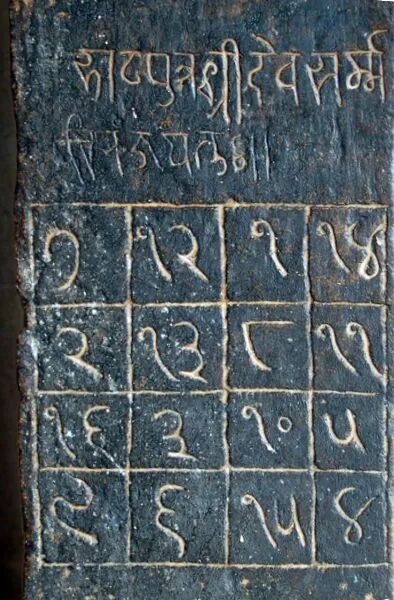 भाटपुत्रश्रीदेवसर्म्म
७ १२ १ १४
२ १३ ८ ११
१६ ३ १० ५
९ ६ १५ ४